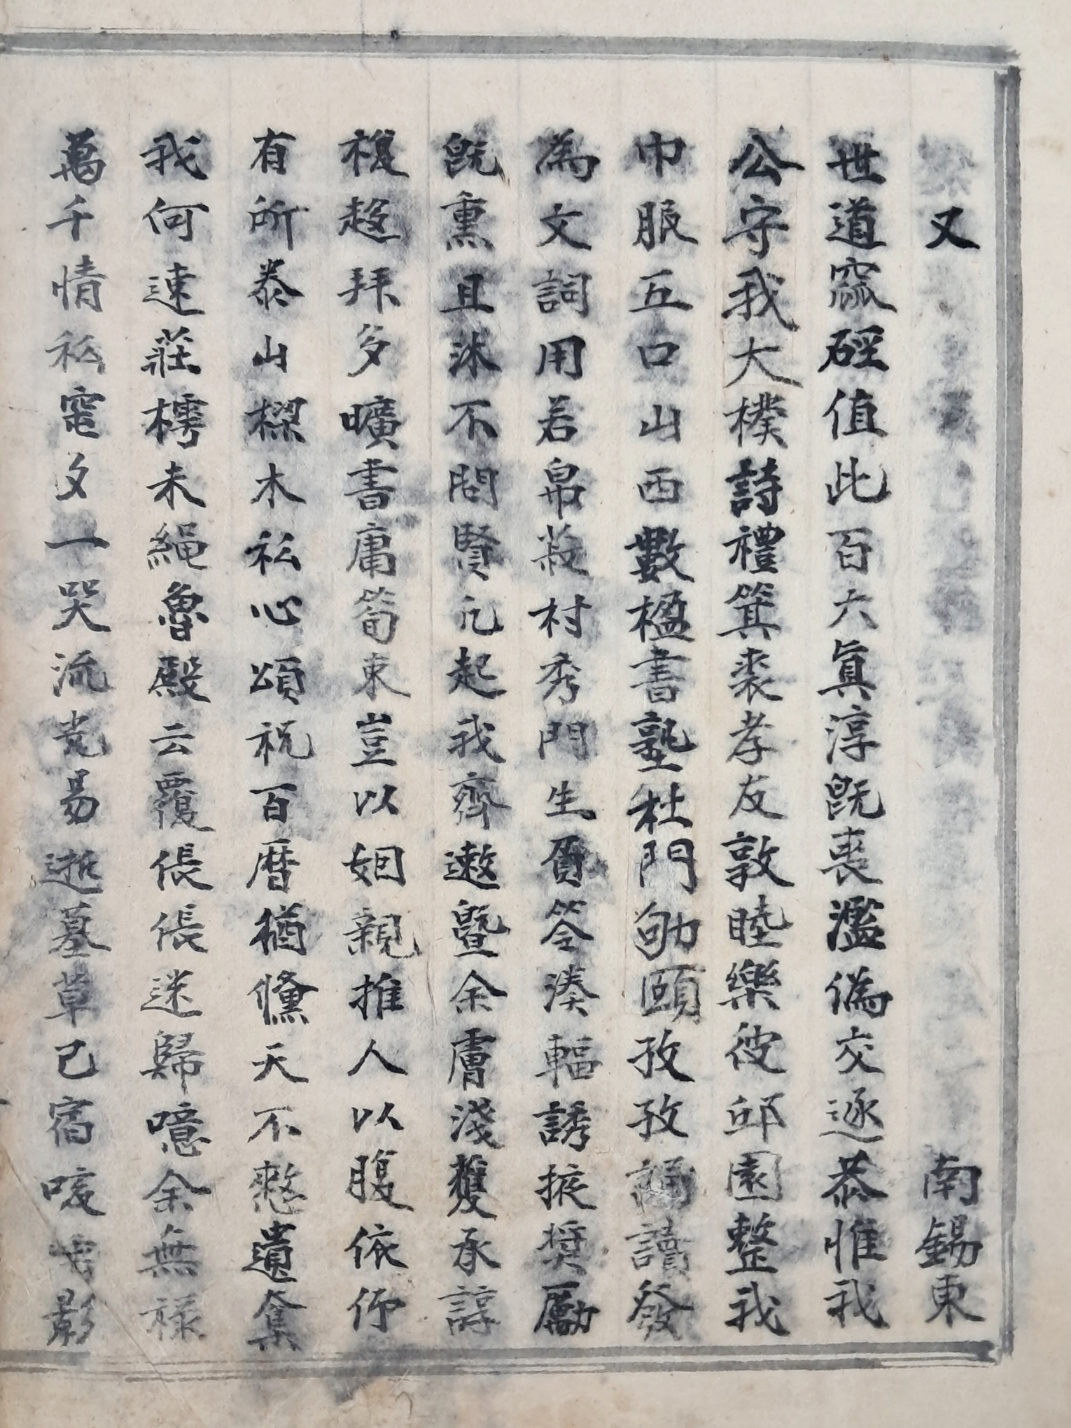 又 南錫東
世道窳硜值此百六眞淳旣喪濫僞交逐恭惟我
公守我大樸詩禮箕裘孝友敦睦樂彼邱園整我
巾服五口山西數楹書塾杜門劬頤孜孜誦讀發
為文詞用若帛菽村秀門生負笭湊輻誘掖奬勵
旣熏且沐不問賢凡起我齊遨曁余膚淺雙承諄
複趍拜多曠書庸荀束豈以姻親推人以腹依仰
有所泰山樑木私心頌祝百曆猶儻天不憗遺奪
我何速莊樗未繩魯殿云覆倀倀迷歸噫余無祿
萬千情私窀夕一哭流光易逝墓草已宿唆 影